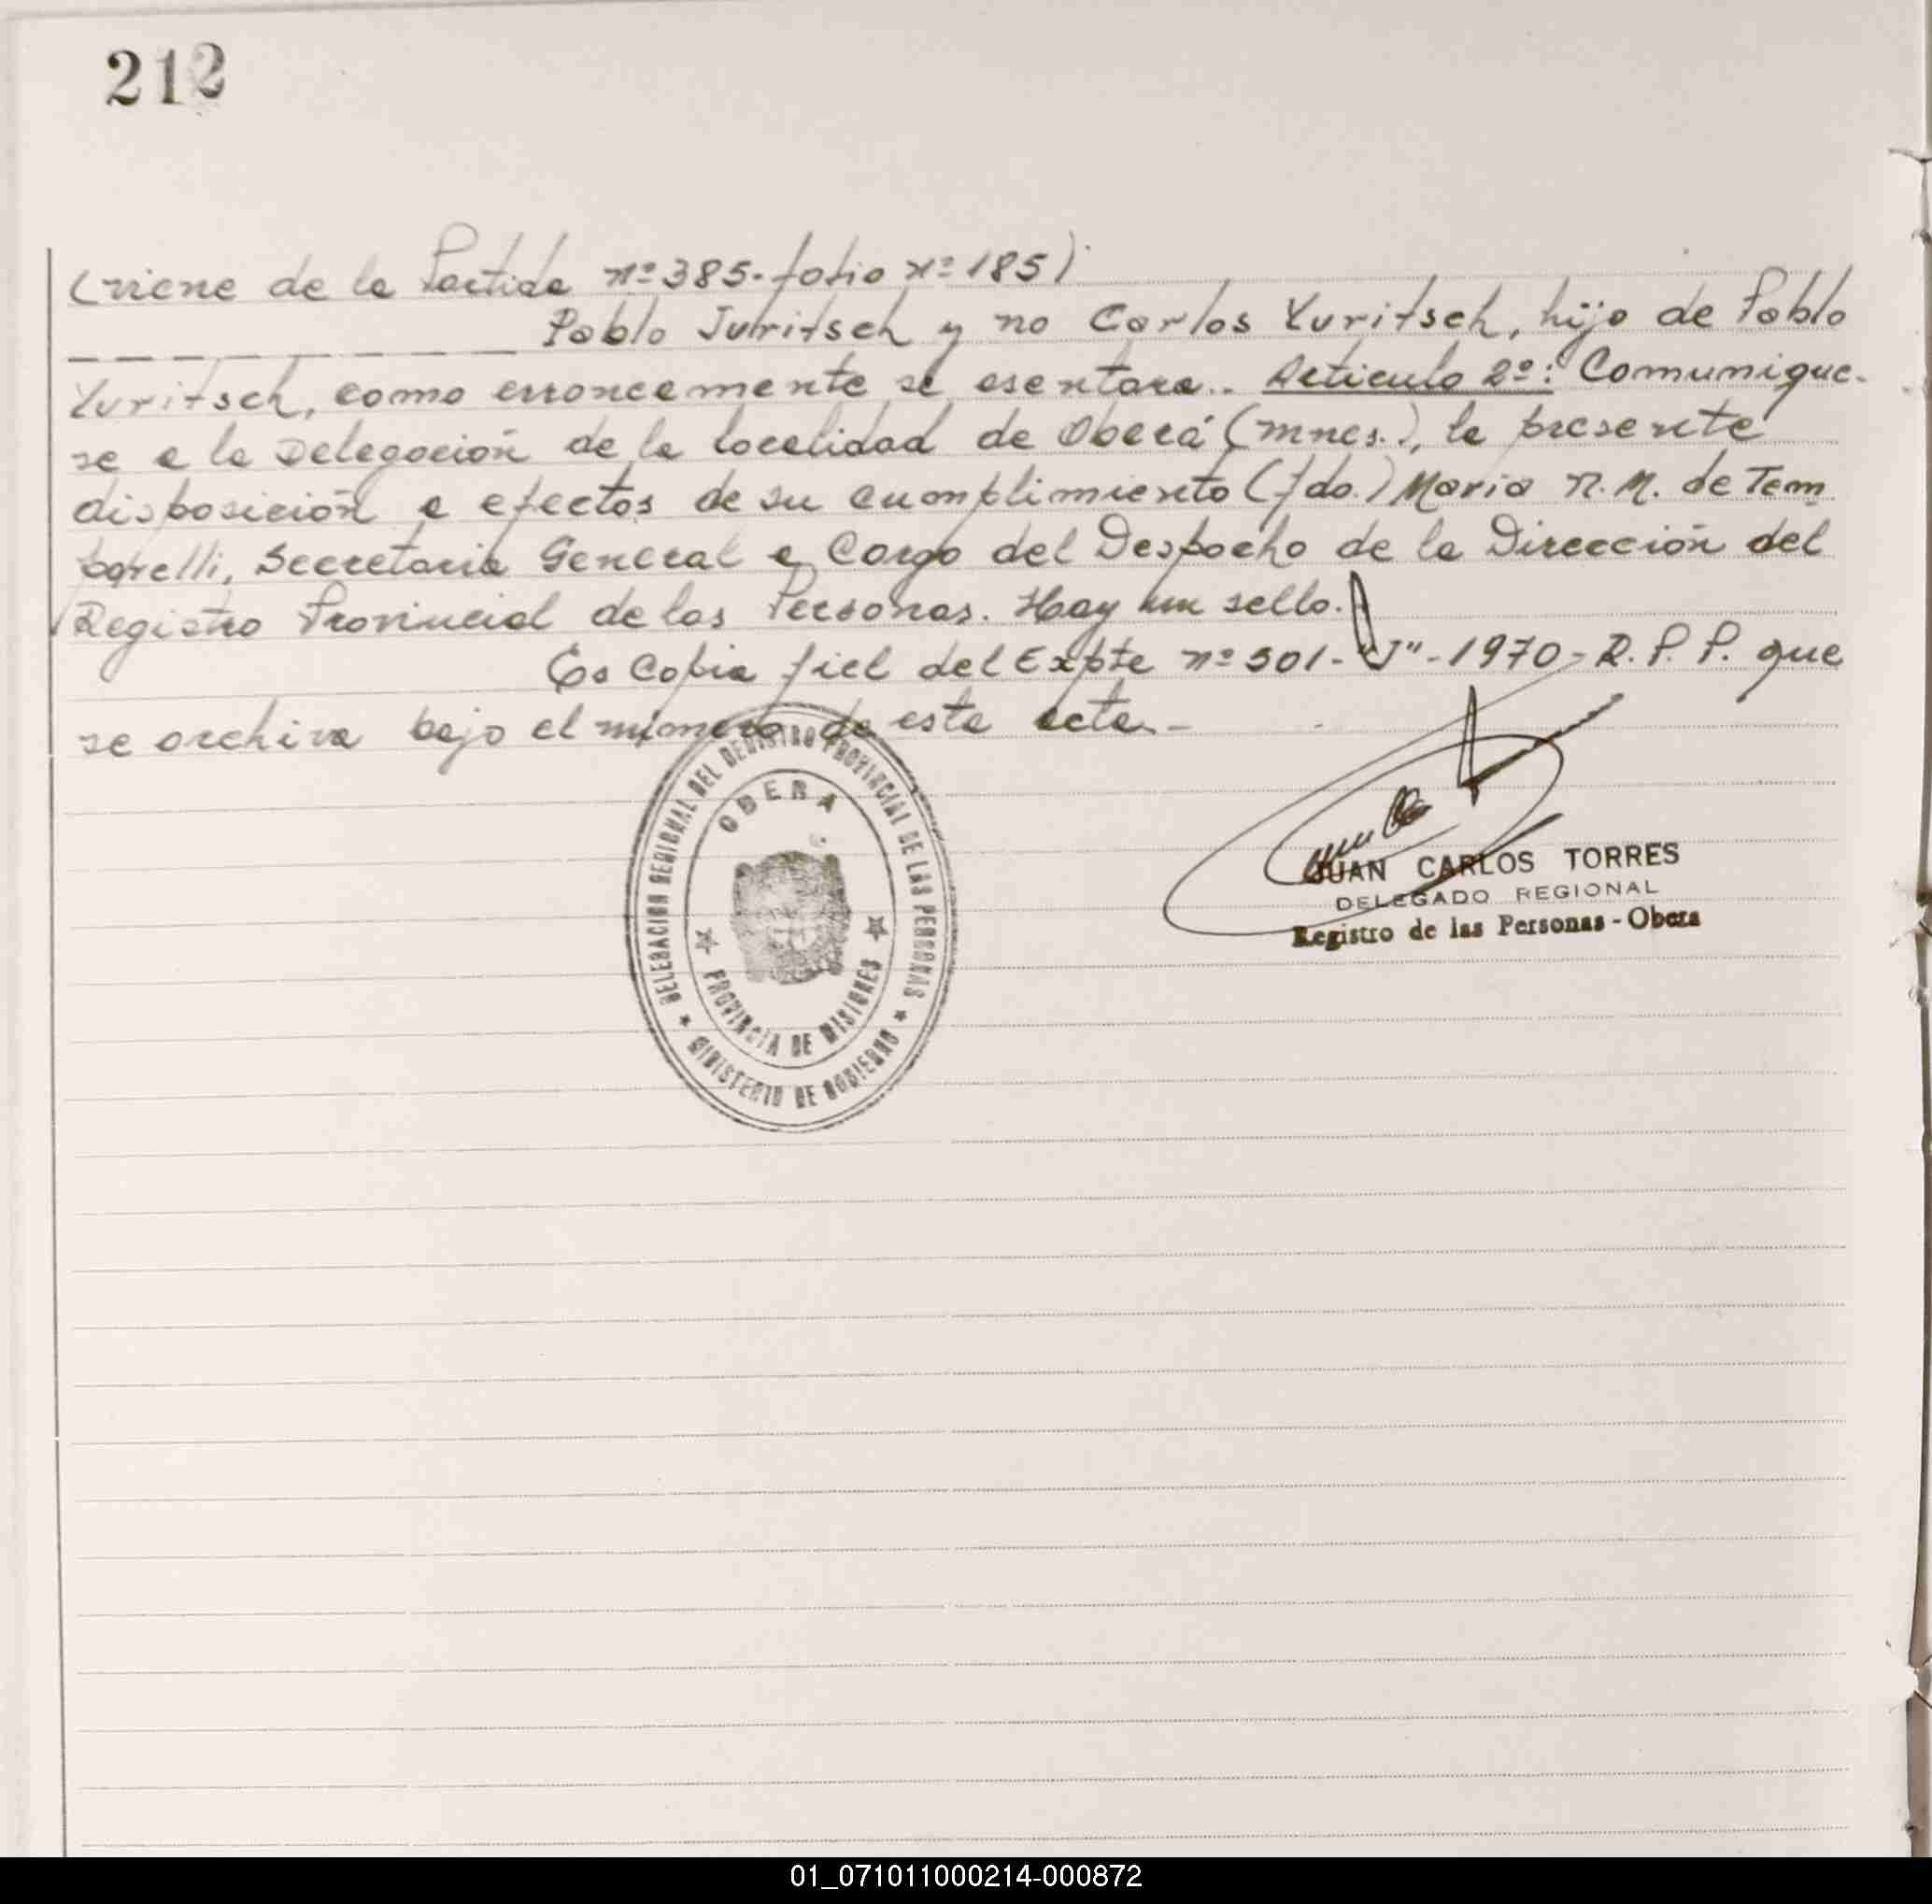 212
(viene de la Partida nº 385. folio nº 185).
Pablo Juritsch y no Carlos Yuritsch, hijo de Pablo
Yuritsch, como erroneamente se asentara.. Articulo 2º: Comunique-
se a la Delegación de la localidad de Oberá (mnes.), la presente
disposición a efectos de su cumplimiento (fdo.) Maria N. M. de Tem
borelli, Secretaria General a Cargo del Despacho de la Dirección del
Registro Provincial de las Personas. Hay un sello.
Es Copia fiel del Expte nº 301-"J"-1970-R.P.P. que
se archiva bajo el número de esta acta.-
DELEGACION REGIONAL DEL REGISTRO PROVINCIAL DE LAS PERSONAS
OBERA
PROVINCIA DE MISIONES
MINISTERIO DE GOBIERNO
JUAN CARLOS TORRES
DELEGADO REGIONAL
Registro de las Personas - Obera
01_071011000214-000872